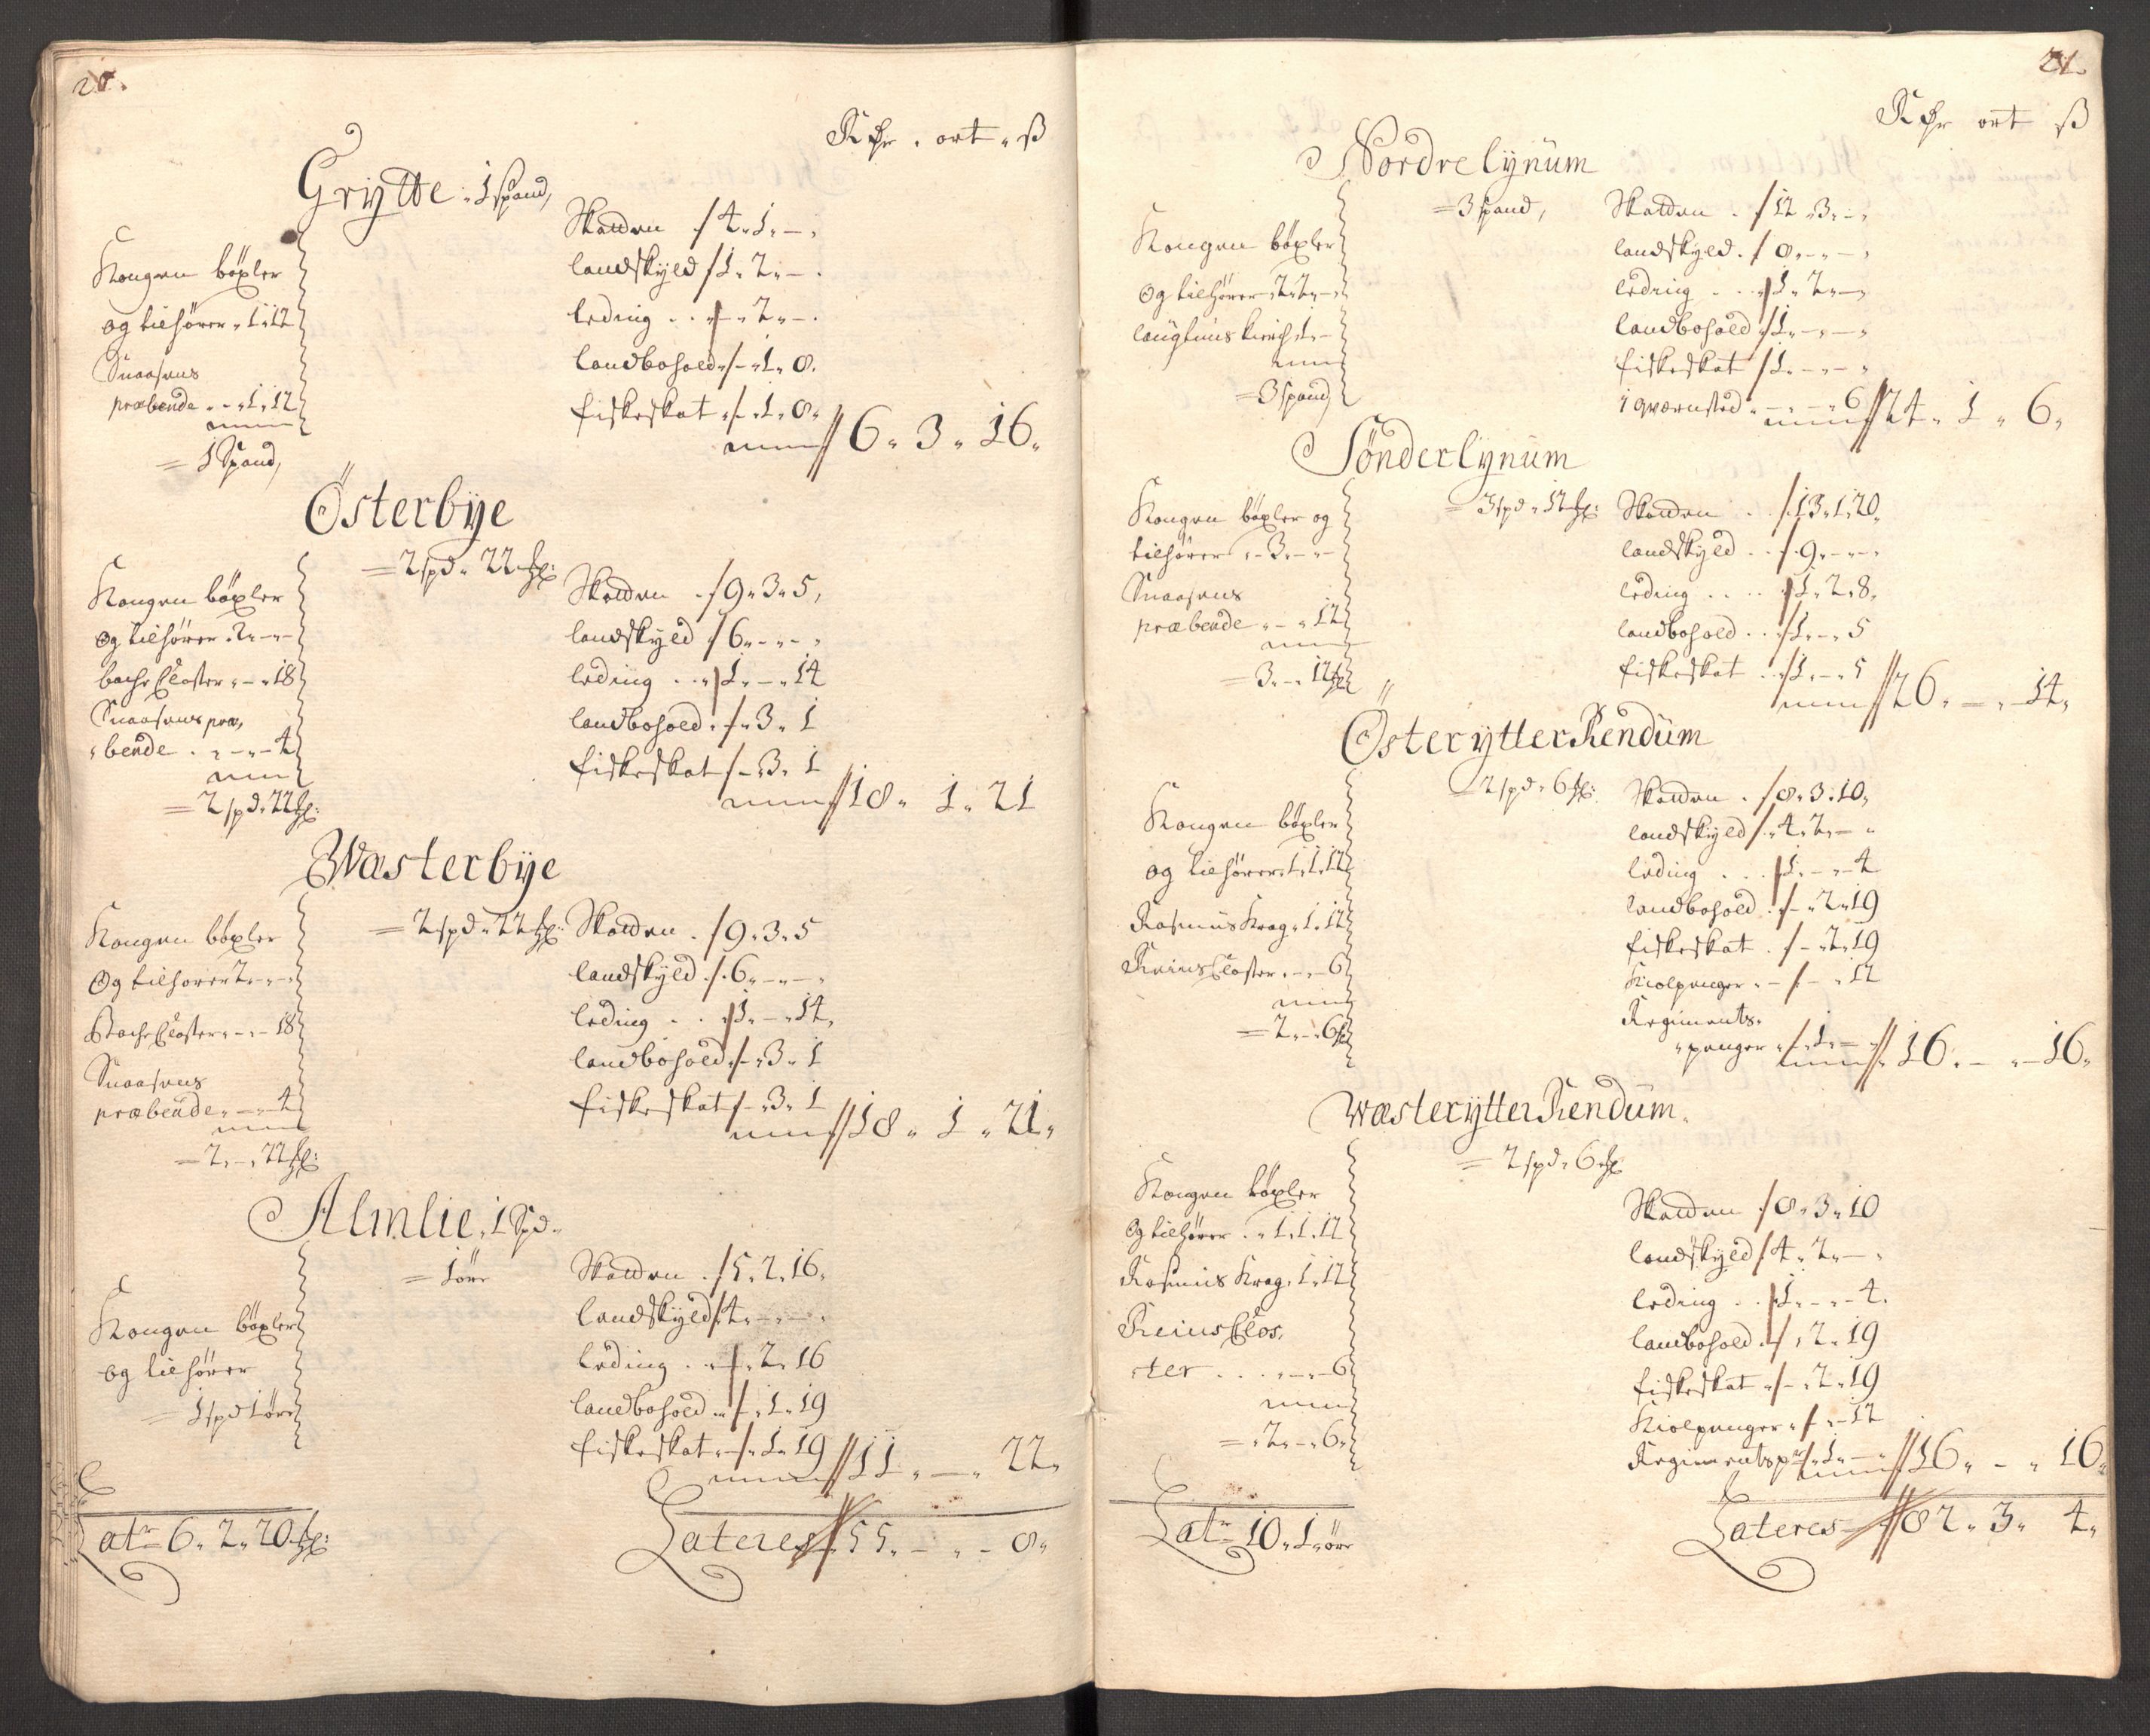 20.
Rdr . ort . ß
Grytte . 1 spand,
Kongen böxler
og tilhörer . 1 . 12
Snaasens
præbende . . . 1 . 12
= 1 Spand,
Skatten . 4 . 1 . – .
landskyld 1 . 2 . – .
leding . . – . 2 . – .
landbohold . – . 1 . 8 .
fiskeskat . – . 1 . 8 .
6 . 3 . 16 .
Österbÿe
= 2 spd . 22
Kongen böxler
og tilhörer . 2 . – . –
bache Closter . – . 18
Snaasens præ,
bende . . – . – 4
= 2 spd . 22
Skatten . 9 . 3 . 5 ,
landskyld 6 . – . – .
leding . . 1 . – . 14
landbohold . – . 3 . 1
fiskeskat – . 3 . 1
18 . 1 . 21
Wæsterbÿe
= 2 spd . 22
Kongen böxler
Og tilhörer 2 . – . –
Bache Closter . – . – 18
Snaasens
præbende . – . 4
= 2 . – . 22
Skatten . 9 . 3 . 5
landskyld . 6 . – . – .
leding . . 1 . – . 14 .
landbohold . – . 3 . 1
fiskeskat – . 3 . 1
18 . 1 . 21 .
Almlie . 1 Spd .
= 1 öre
Kongen böxler
og tilhörer
= 1 spd 1 öre
Skatten . 5 . 2 . 16 .
landskyld 4 . – . – .
leding . . – . 2 . 16
landbohold . . – . 1 . 19
fiskeskat . – . 1 . 19
11 . – . 22 .
Latr 6 . 2 . 20
Lateres 55 . – . – 8 .
21.
Rdr ort ß
Nordre lÿnüm
= 3 spand ,
Kongen böxler
og tilhörer . 2 . 2 . – .
= 3 spand,
Skatten . 12 . 3 . – .
landskyld . 8 . – . – .
leding . . . 1 . 2 . – .
landbohold . 1 . – . – .
fiskeskat 1 . – . – .
1 qværnsted . – . – . 6
24 . 1 . 6 .
Sönder lÿnüm
= 3 spd . 12
Kongen böxler og
tilhörer . – 3 . – . –
Snaasens
præbende . – . 12
= 3 . – . 12
Skatten . . 13 . 1 . 20 .
landskyld . . 9 . – . – .
leding . . . . 1 . 2 . 8 .
landbohold . . 1 . – . 5
fiskeskat . 1 . – . 5
26 . – . – 14 .
Österytter Rendüm
= 2 spd . 6
Kongen böxler
og tilhörer . 1 . 1 . 12
Rasmus Krag . 1 . 12
Reins Closter . – . – 6
= 2 . – . 6
Skatten . 8 . 3 . 10 .
landskyld . 4 . 2 . – .
leding . . . 1 . – . – 4
landbohold . – . 2 . 19
fiskeskat . – . 2 . 19
Kiolpenger . – – . 12
Regiments .
penger . – . 1 . – .
16 . – . – 16 .
Wæsterÿtter Rendüm .
= 2 spd . 6
Kongen böxler
og tilhörer . . 1 . 1 . 12
Rasmus Krag . 1 . 12
Reins Clos .
ter . . . . – . – 6
= . 2 . – . 6 .
Skatten . 8 . 3 . 10
landskyld 4 . 2 . – .
leding . . 1 . – . – 4 .
landbohold . . 2 . 19
fiskeskat . – . 2 . 19
Kiolpenger . . – 12
Regiments pr . 1 . – .
16 . – . 16 .
Latr 10 . 1 . öre
Lateres 82 . 3 . 4 .